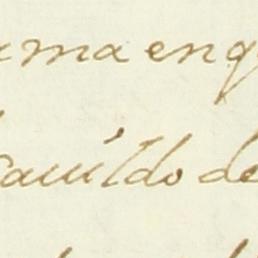 ma en q
Cavildo de